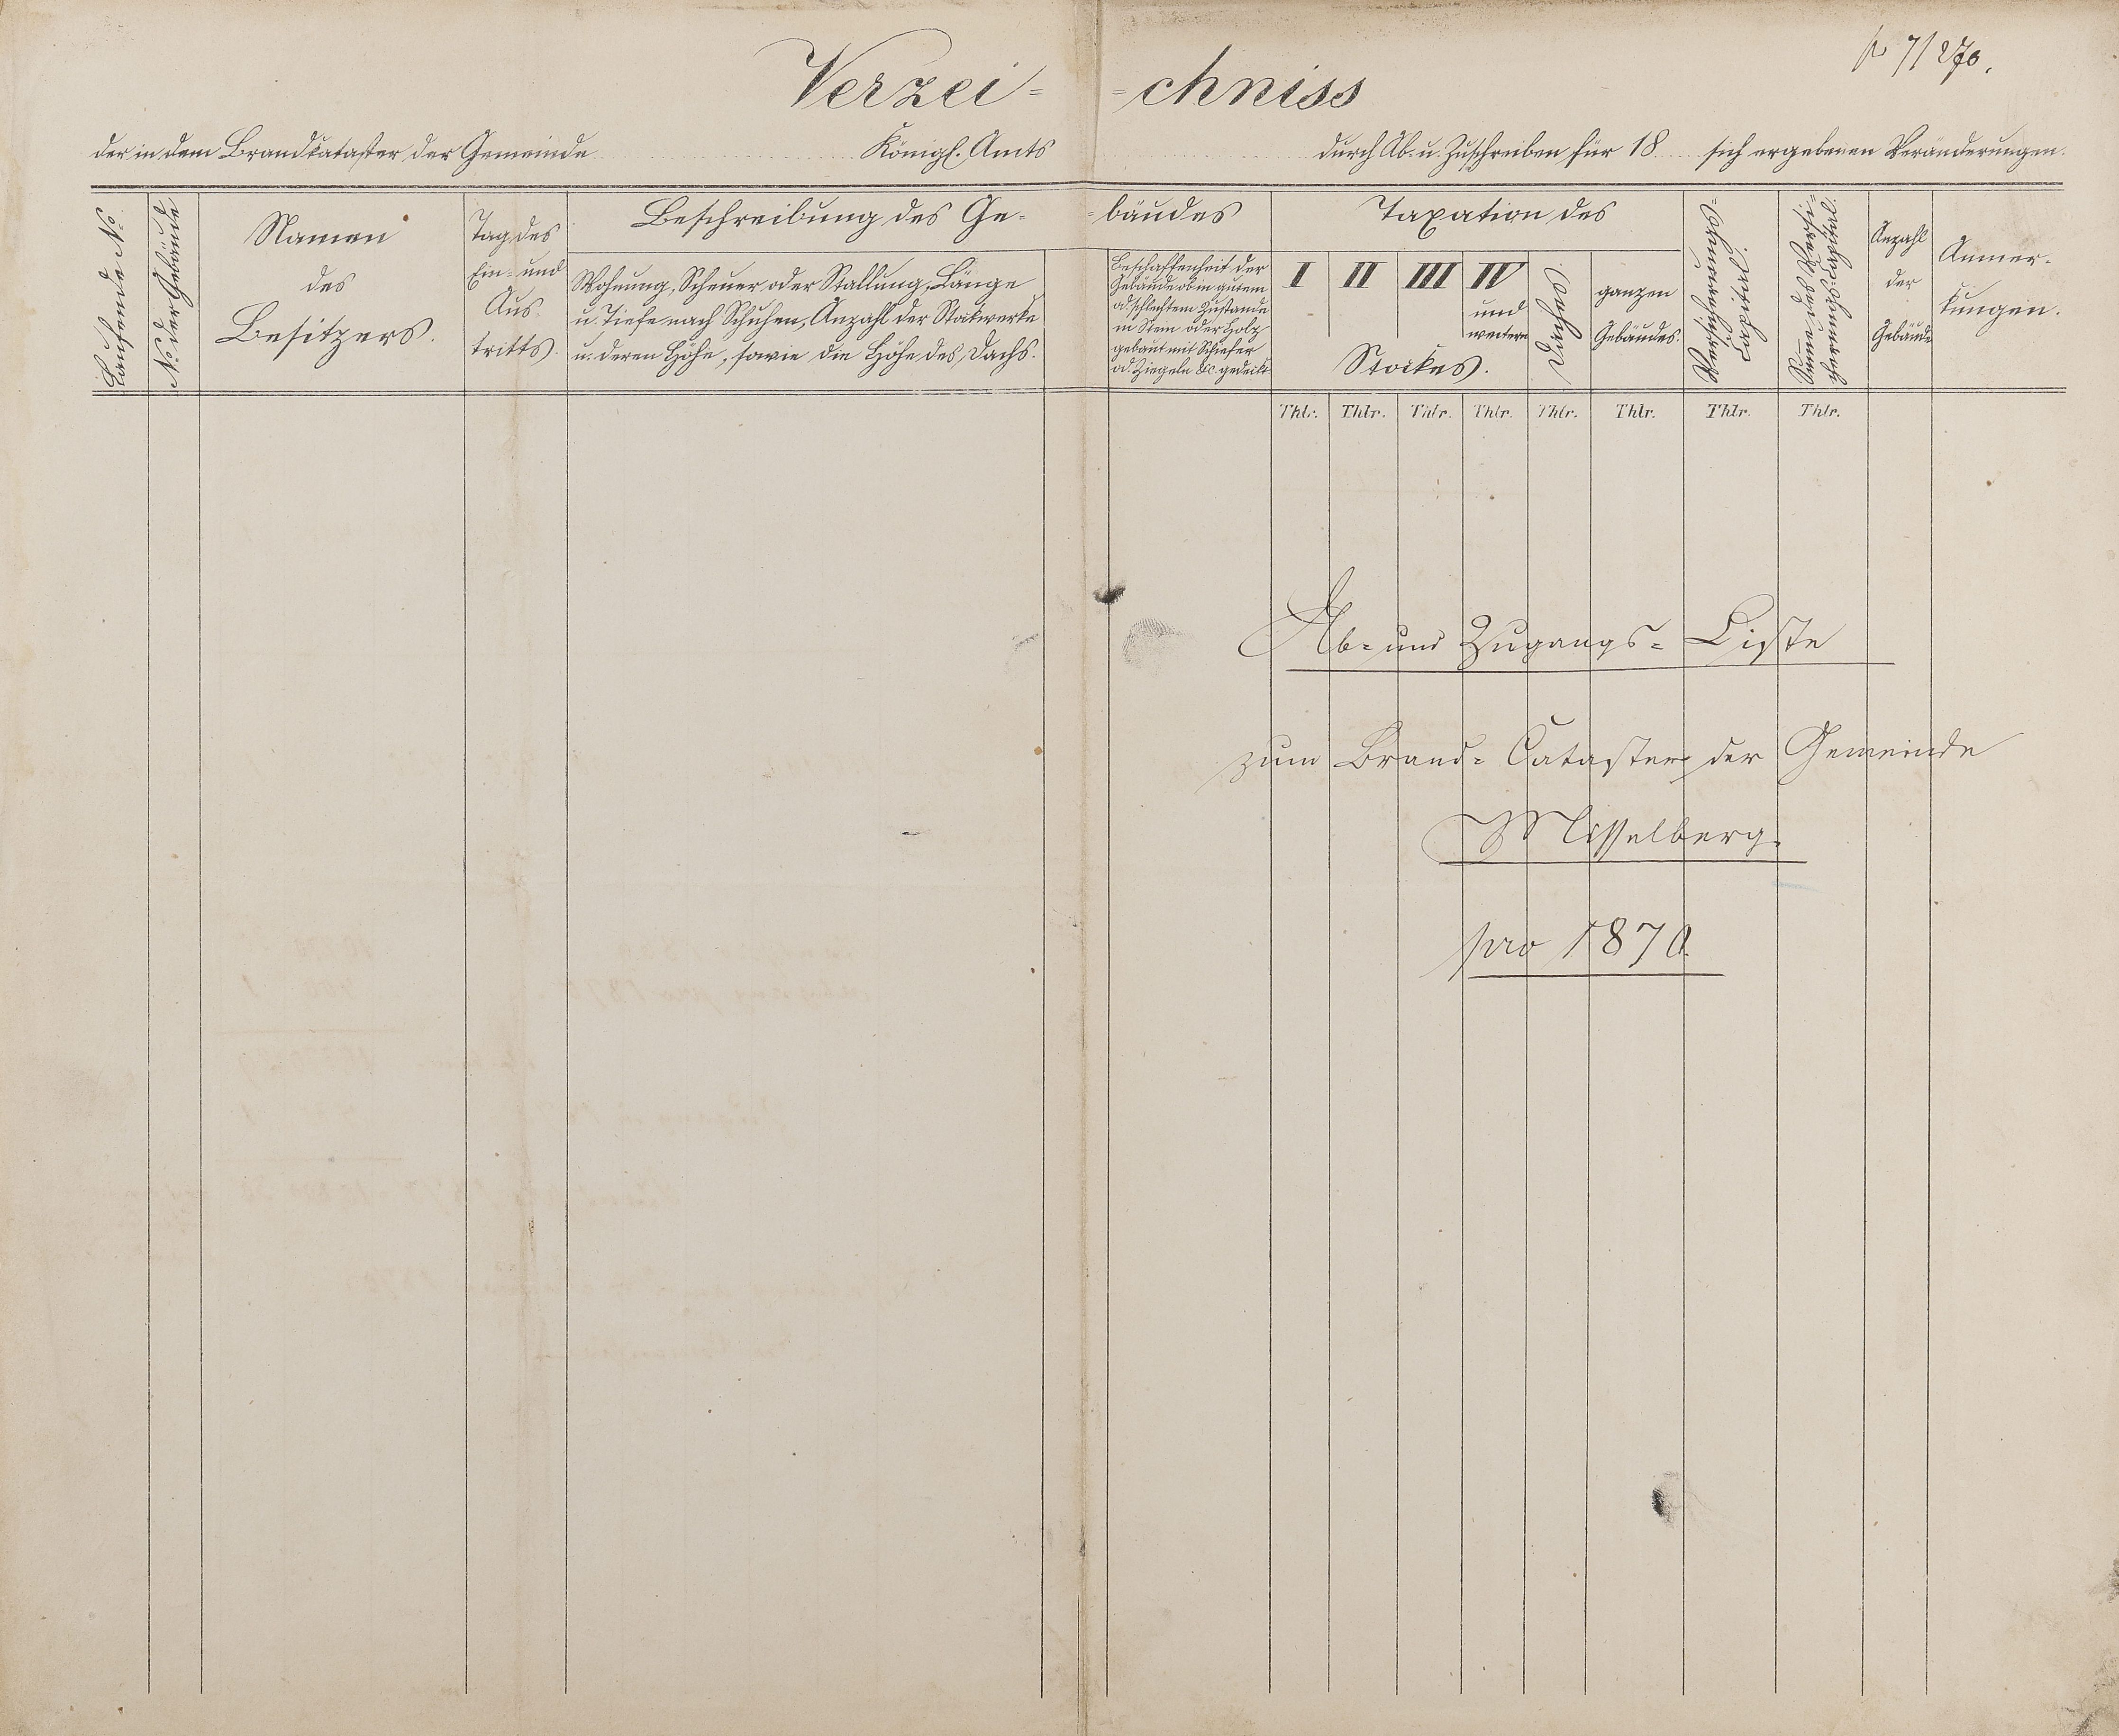 p 7/2 70.
Verzei-chniss
der in dem Brandkataster der Gemeinde Königl. Amts durch Ab- u. Zuschreiben für 18 sich ergebenen Veränderungen.
Laufende No.
No. der Gebäude
Namen
des
Besitzers.
Tag des
Ein- und
Aus-
tritts.
Beschreibung des Ge-bäudes
Wohnung, Scheuer oder Stallung, Länge
u. Tiefe nach Schuhen, Anzahl der Stokwerke
u. deren Höhe, sowie die Höhe des Dachs.
Beschaffenheit der
Gebäude ob in gutem
od. schlechtem Zustande
in Stein oder Holz
gebaut mit Schiefer
od. Ziegeln &c. gedeckt
Taxation des
I II III IV
und
weitere
Stockes.
Dachs
ganzen
Gebäudes.
Versicherungs-
Capital
Summe des Versi-
cherungs-Capitals
Anzahl
der
Gebäude
Anmer-
kungen.
Thlr. Thlr. Thlr. Thlr. Thlr. Thlr. Thlr. Thlr.
Ab- und Zugangs-Liste
zum Brand-Cataster der Gemeinde
Misselberg.
pro 1870.